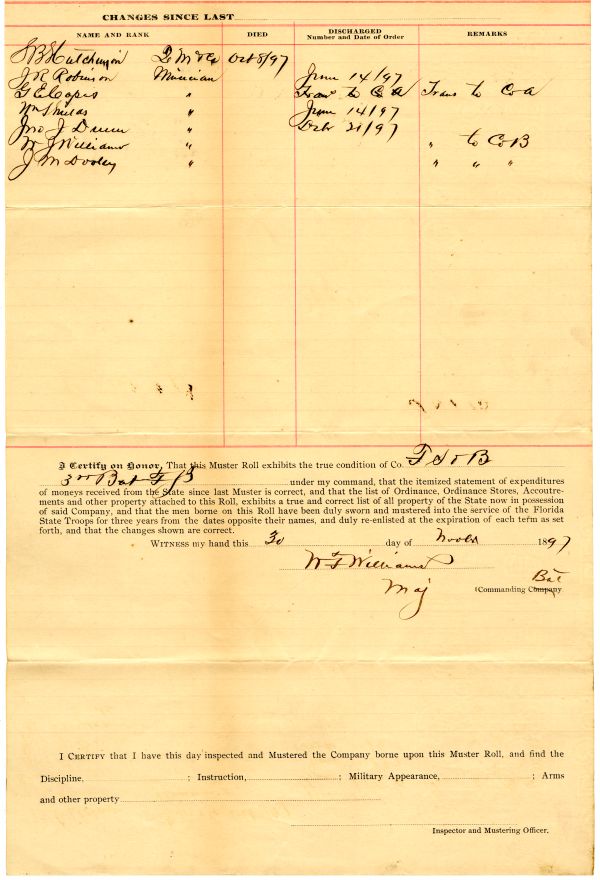 CHANGES SINCE LAST
NAME AND RANK DIED DISCHARGED REMARKS
Number and Date of Order
S B Hutchinson Q M Oct 8/97
J R Robinson Musician June 14/97
G E Copes " Trans to Co A Trans to Co A
Wm Shields " June 14/97
Jno J Dunn " Octr 21/97
W J Williams " " to Co B
J M Dooley " " " "
I Certify on Honor, That this Muster Roll exhibits the true condition of Co. F S & B
3rd Bat F
under my command, that the itemized statement of expenditures
of moneys received from the State since last Muster is correct, and that the list of Ordinance, Ordinance Stores, Accoutre-
ments and other property attached to this Roll, exhibits a true and correct list of all property of the State now in possession
of said Company, and that the men borne on this Roll have been duly sworn and mustered into the service of the Florida
State Troops for three years from the dates opposite their names, and duly re-enlisted at the expiration of each term as set
forth, and that the changes shown are correct.
WITNESS my hand this 30 day of Novbr 1897
W F Williams
Maj Commanding Company Bat
I CERTIFY that I have this day inspected and Mustered the Company borne upon this Muster Roll, and find the
Discipline, ; Instruction, ; Military Appearance, ; Arms
and other property
Inspector and Mustering Officer.